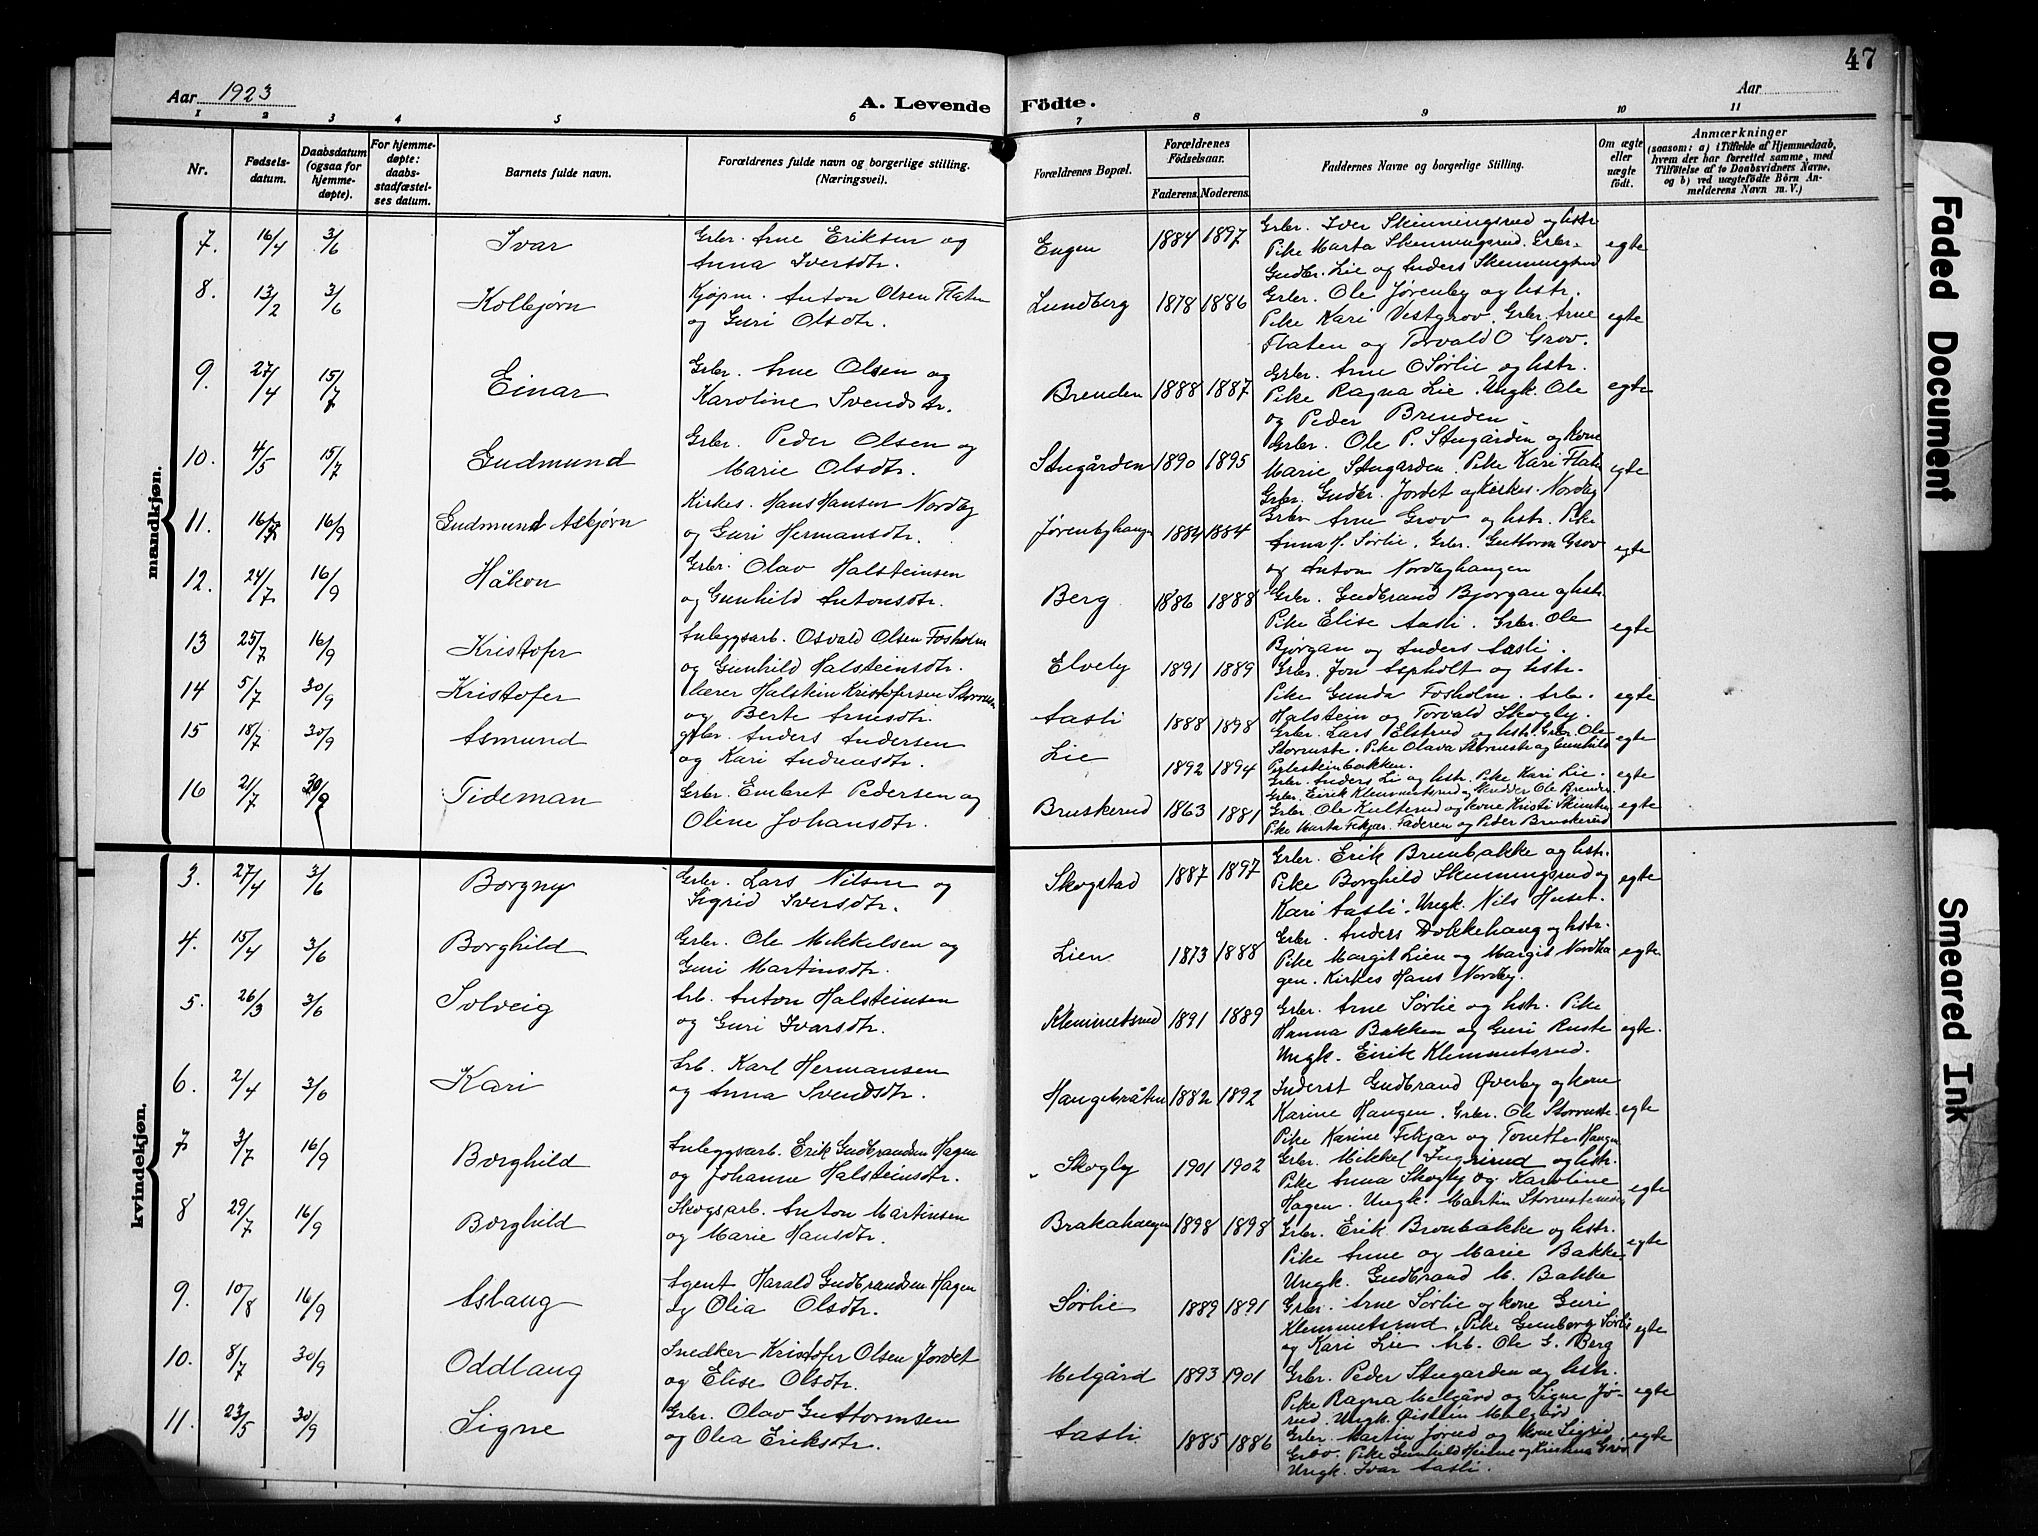 47
Aar 1923
A. Levende Födte.
Aar
1 2 3 4 5 6 7 8 9 10 11
Nr.
Fødsels-
datum.
Daabsdatum
(ogsaa for
hjemme-
døpte).
For hjemme-
døpte:
daabs-
stadfæstel-
ses datum.
Barnets fulde navn.
Forældrenes fulde navn og borgerlige stilling.
(Næringsvei).
Forældrenes Bopæl.
Forældrenes
Fødselsaar.
Faderens.
Moderens.
Faddernes Navne og borgerlige Stilling.
Om ægte
eller
uægte
født.
Anmærkninger
(saasom: a) i Tilfælde af Hjemmedaab,
hvem der har forrettet samme, med
Tilføielse af to Daabsvidners Navne,
og b) ved uægtefødte Börn An-
melderens Navn m. V.)
mandkjøn.
7. 16/4 3/6 Ivar Grbr. Arne Eriksen og Engen 1884 1897 Grbr. Iver Skinningsrud og hstr.
Anna Iversdtr. Pike Marta Skinningsrud. Grbr. egte
Gudbr. Lie og Anders Skinningsrud
8. 13/2 3/6 Kolbjørn Kjøpm. Anton Olsen Flaten Lundberg 1878 1886 Grbr. Ole Jørenby og hstr.
og Guri Olsdtr. Pike Kari Vestgrov, Grbr. Arne egte
Flaten og Torvald O Grov.
9. 27/4 15/7 Einar Grbr. Arne Olsen og Brenden 1888 1887 Grbr. Arne O Sørlie og hstr.
Karoline Svendsdtr. Pike Ragna Lie. Ungk. Ole egte
og Peder Brenden.
10. 4/5 15/7 Gudmund Grbr. Peder Olsen og Stugården 1890 1895 Grbr. Ole P. Stugården og kone
Marie Olsdtr. Marie Stugarden. Pike Kari Flaten egte
Grbr. Gudbr. Jordet og Kirkes. Nordby
11. 16/9 Gudmund Asbjørn Kirkes. Hans Hansen Nordby Jørenbyhaugen 1884 1884 Grbr. Arne Grov og hstr. Pike
og Guri Hermansdtr. Anna H. Sørlie. Grbr. Guttorm Grov egte
og Anton Nordbyhaugen
12. 24/7 16/9 Håkon Grbr. Olav Halsteinsen Berg 1886 1888 Grbr. Gudbrand Bjørgan og hstr.
og Gunhild Antonsdtr. Pike Elise Aasli. Grbr. Ole egte
Bjørgan og Anders Aasli.
13 25/7 16/9 Kristofer Anleggsarb. Osvald Olsen Fosholm Elvely 1891 1889 Grbr. Jon Aspholt og hstr.
og Gunhild Halsteinsdtr. Pike Gunda Fosholm. Arb. egte
Halstein og Torvald Skogly.
14 5/7 30/9 Kristofer lærer Halstein Kristofersen Storruste Aasli 1888 1898 Grbr. Lars Elstrud og hstr. Grbr. Ole
og Berte Arnesdtr. Storruste. Pike Olava Storruste og Gunhild egte
Perlesteinbakken.
15 18/7 30/9 Asmund grbr. Anders Andersen Lie 1892 1894 Grbr. Anders Li og hstr. Pike Kari Lie. egte
og Kari Andreasdtr. Grbr. Eirik Klemmetsrud og Skredder Ole Brenden.
16 21/7 30/9 Tideman Grbr. Embret Pedersen og Bruskerud 1863 1881 Grbr. Ole Kulterud og kone Kristi egte
Oline Johansdtr. Pike Marta Fekjær. Faderen og Peder Bruskerud
kvindekjøn.
3. 27/4 3/6 Borgny Grbr. Lars Nilsen og Skogstad 1887 1897 Grbr. Erik Brunbakke og hstr.
Sigrid Iversdtr. Pike Borghild Skinningsrud og egte
Kari Aasli. Ungk. Nils Huset.
4. 15/4 3/6 Borghild Grbr. Ole Mikkelsen og Lien 1873 1888 Grbr. Anders Dokkehaug og hstr.
Guri Martinsdtr. Pike Margit Lien og Margit Nordha- egte
gen. Kirkes Hans Nordby.
5. 26/3 3/6 Solveig Arb. Anton Halsteinsen Klemmetsrud 1891 1889 Grbr. Arne Sørlie og hstr. Pike
og Guri Ivarsdtr. Hanna Bakken og Guri Ruste egte.
Ungk. Eirik Klemmetsrud.
6. 2/4 3/6 Kari Arb. Karl Hermansen Haugebråten 1882 1892 Inderst Gudbrand Øverby og kone
og Anna Svendsdtr. Karine Haugen. Grbr. Ole Storruste egte
Pike Karine Fekjær og Tonette Haugen
7 3/7 16/9 Borghild Anleggsarb. Erik Gudbrandsen Hagen Skogly 1901 1902 Grbr. Mikkel Ingrirud og hstr.
og Johanne Halsteinsdtr. Pike Anna Skogly og Karoline egte
Hagen. Ungk. Martin Storrustemoen
8 29/7 16/9 Borghild Skogsarb. Anton Martinsen Brakahaugen 1898 1898 Grbr. Erik Brunbakke og hstr.
og Marie Hansdtr. Pike Anne og Marie Bakke. egte
Ungk. Gudbrand M. Bakke
9. 10/8 16/9 Aslaug Agent Harald Gudbrandsen Hagen Sørlie 1889 1891 Grbr. Arne Sørlie og kone Guri
og Olia Olsdtr. Klemmetsrud. Pike Gunborg Sørlie egte
og Kari Lie Arb. Ole G. Berg
10. 8/7 30/9 Oddlaug Snedker Kristofer Olsen Jordet Melgård 1893 1901 Grbr. Peder Stugarden og hstr.
og Elise Olsdtr. Pike Ragna Melgård og Signe Jø- egte
rud. Ungk. Øistein Melgård
11. 23/5 30/9 Signe Grbr. Olav Guttormsen Aasli 1885 1886 Grbr. Martin Jørud og kone Sigrid egte
og Olea Eriksdtr. Grov. Pike Gunhild Heime og Kristina Grov
Ungk. Ivar Aasli.
Faded Document
Smeared Ink